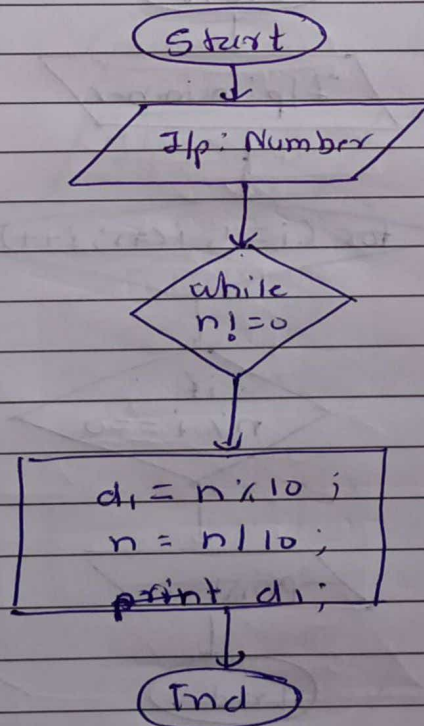 Start
I/p: Number
while
n! = 0
d₁ = n % 10 ;
n = n / 10 ;
print d₁ ;
End